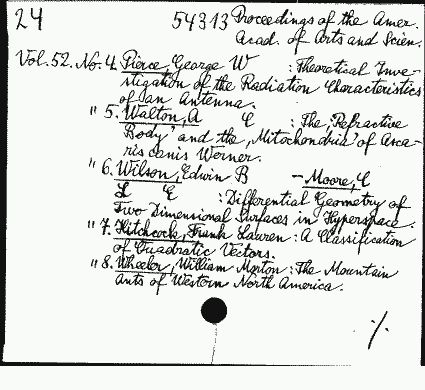 24 54313 Proceedings of the Amer.
Acad. of Arts and Scien.
Vol. 52. No. 4. Pierce, George W : Theoretical Inve-
stigation of the Radiation Characteristics
of an Antenna.
" 5. Walton, A C : The 'Refractive
Body' and the 'Mitochondria' of Asca-
ris canis Werner.
" 6. Wilson, Edwin B - Moore, C
L E : Differential Geometry of
Two Dimensional Surfaces in Hyperspace.
" 7. Hitchcock, Frank Lauren : A Classification
of Quadratic Vectors.
" 8. Wheeler, William Morton : The Mountain
Ants of Western North America.
./.